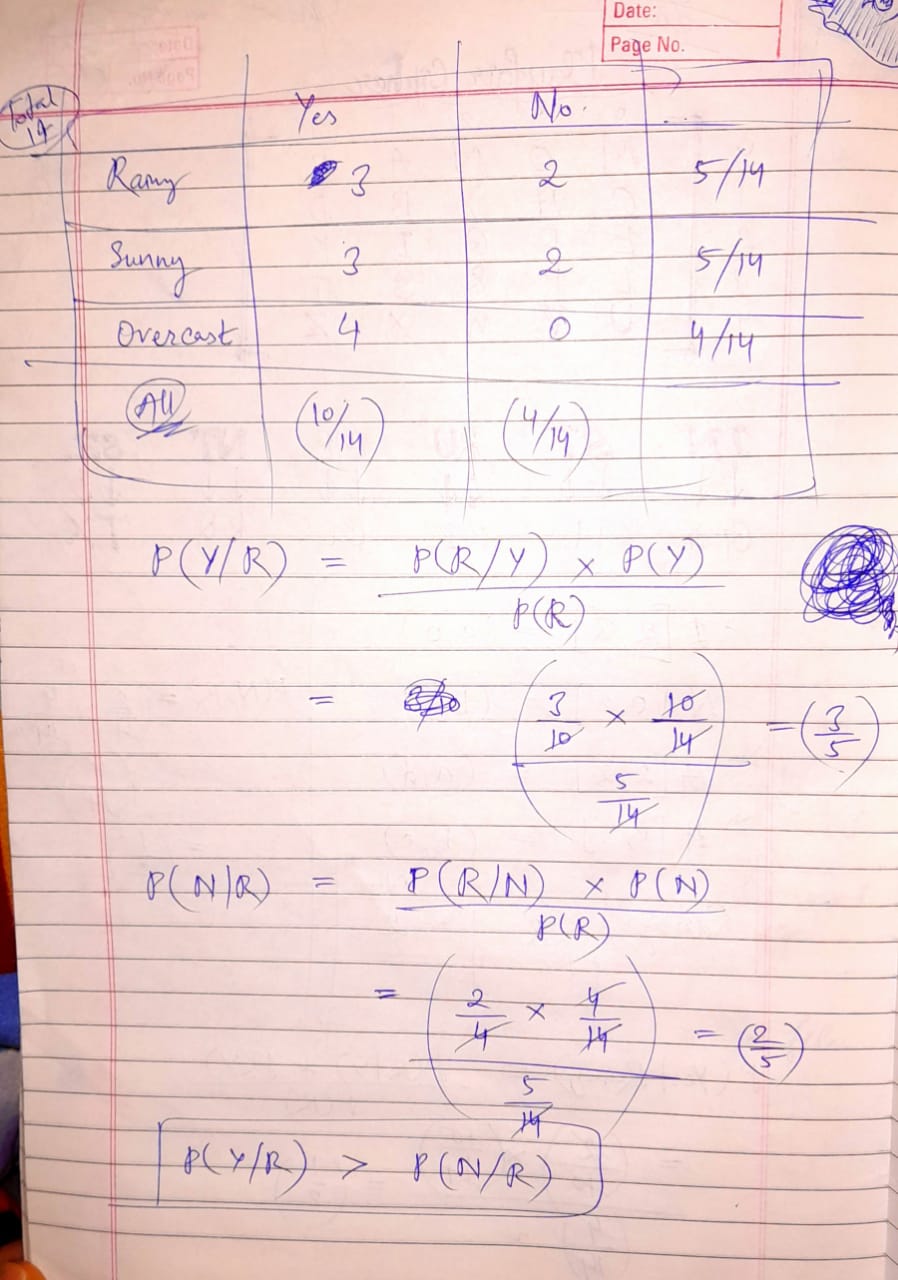 Date:
Page No.
Total
14
Yes No.
Rainy 3 2 5/14
Sunny 3 2 5/14
Overcast 4 0 4/14
All (10/14) (4/14)
P(Y/R) = P(R/Y) × P(Y)
P(R)
= 3/10 × 10/14 = (3/5)
5/14
P(N|R) = P(R/N) × P(N)
P(R)
= 2/4 × 4/14 = (2/5)
5/14
P(Y/R) > P(N/R)